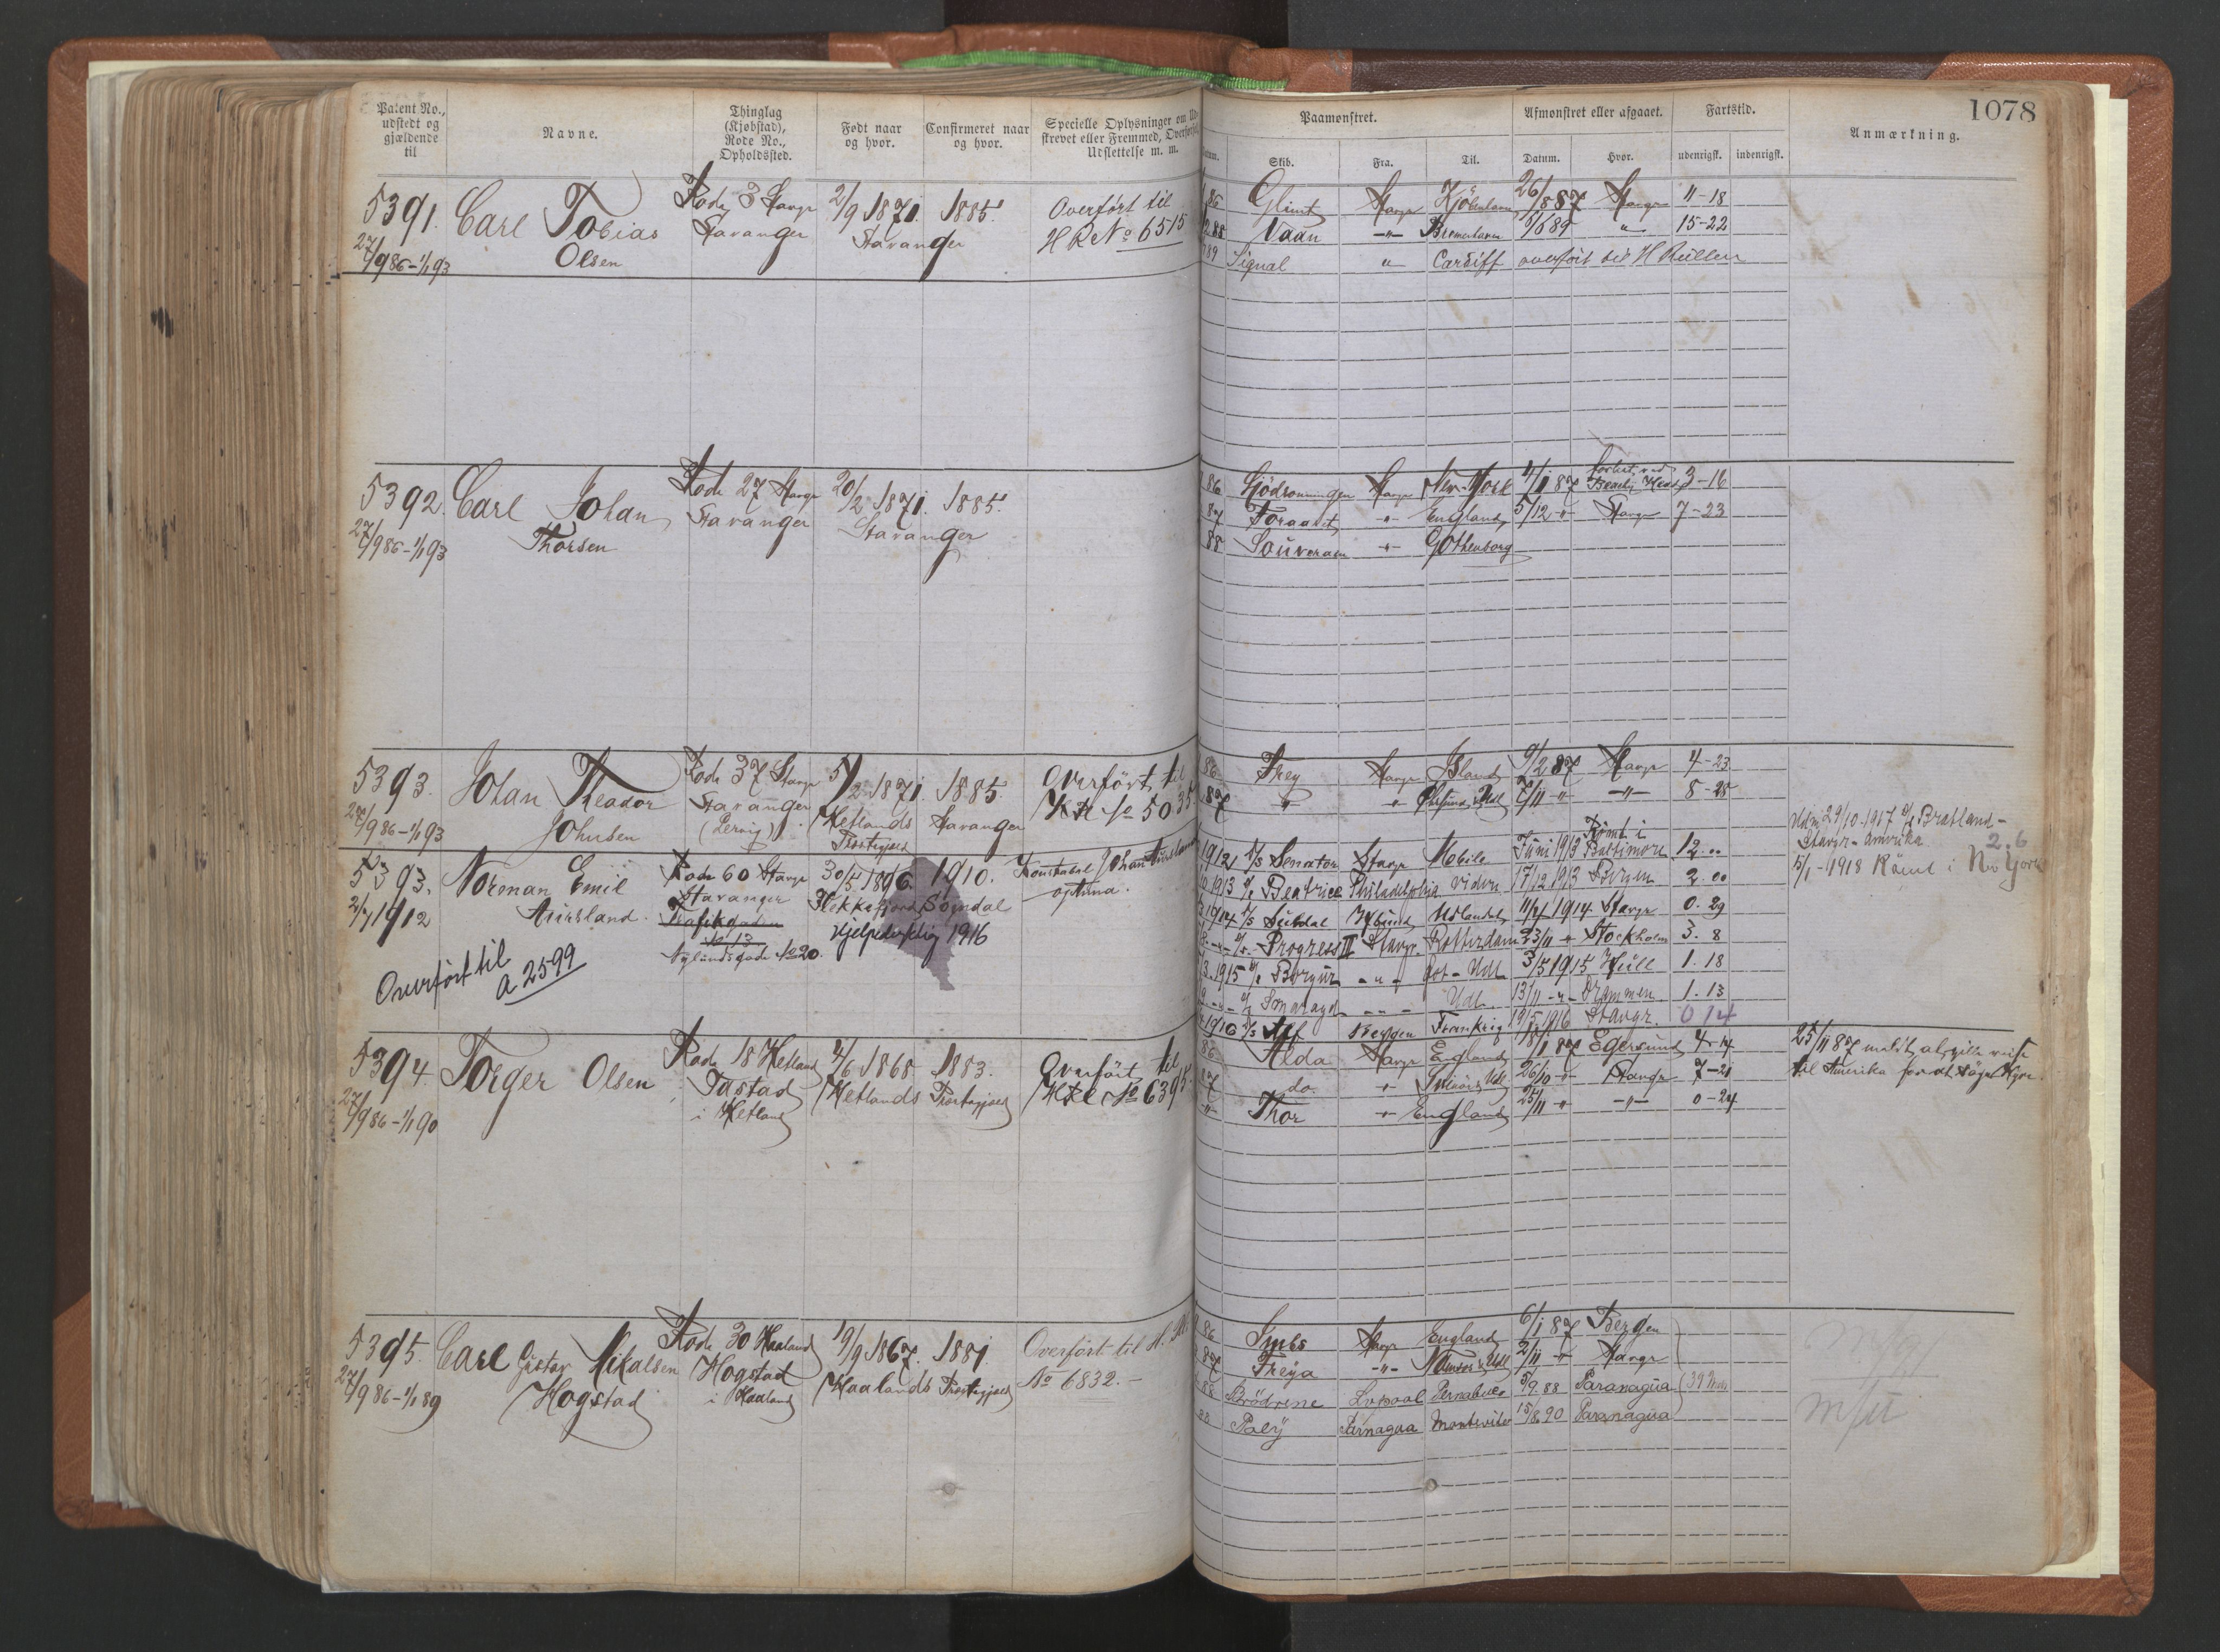 Patent No., udstedt og gjældende til
Navne.
Thinglag (Kjøbstad), Rode No., Opholdssted.
Født naar og hvor.
Confirmeret naar og hvor.
Specielle Oplysninger om Ud-
skrevet eller Fremmed, Overførsel,
Udslettelse m. m.
Paamonstret.
Skib.
Fra.
Til.
Afmonstret eller afgaaet.
Datum.
Hvor.
Fartstid.
udenrigsk.
indenrigsk.
Anmærkning.
1078
5391.
27/9 86-1/1 93
Carl Tobias
Olsen
Rode 3 Stavgr
Stavanger
2/9 1871.
1885.
Stavanger
Overført til
H R No 6515
86 Glimt Stavgr Kjöbenhavn 26/8 87 Stavgr 11-18
88 Vaan -"- Bremerhaven 5/6 89 " 15-22
89 Signal " Cardiff overført til H Rullen
5392.
27/9 86-1/1 93
Carl Johan
Thorsen
Rode 27 Stavgr
Stavanger
20/2 1871.
1885.
Stavanger
86 Sjödronningen Stavgr New-York 4/1 87 forlist ved Beachy Head 3-16
87 Foraaret -"- England 5/12 -"- Stavgr 7-23
88 Souverain -"- Gothenborg
5393.
27/9 86-1/1 93
Johan Theador
Johnsen
Rode 37 Stavgr
Stavanger
(Lervig)
5/2 1871.
Hetlands
Præstegjæld
1885.
Stavanger
Overført til
No 5035
86 Frey Stavgr Island 9/2 87 Stavgr 4-23
87 " " Udl 7/11 -"- -"- 8-28
5393.
2/7 1912
Overført til
A 2599
Norman Emil
Aursland.
Rode 60 Stavgr
Stavanger
Trafikgaden
No 13
Nylundsgade No 20.
30/5 1896.
Flekkefjord
1910.
Sogndal
Hjelpedyktig 1916
Konstabel Johan Aursland
optuna.
1912 S/S Senator Stavgr Mobile Juni 1913 Rømt i Baltimore 12."
1913 Beatrice Philadelphia videre 17/12 1913 Bergen 2.00
1914 S/S Suldal Udlandet 11/4 1914 Stavgr 0.29
Progress II Stavgr. Rotterdam 23/11 " Stockholm 3. 8
1915 Borgund -"- Got-Udl. 3/5 1915 Hull 1.18
Udl. 13/11 -"- Drammen. 1.13
1916 S/S Alf Bergen Frankrig 19/5 1916 Stavgr. 0 14
Udm 29/10-1917 Bratland-
Stavgr-Amerika 2.6
15/1-1918 Rømt i New York
5394.
27/9 86-1/1 90
Torger Olsen
Rode 18 Hetland
Tastad
i Hetland
4/6 1868.
Hetlands Præstegjæld
1883.
Overført til
No 6395.
86 Alda Stavgr England 18/1 87 Egersund 4-14
87 do. " Udl 26/10 -"- Stavgr 7-21
" Thor " England 25/11 " -"- 0-24
25/11 87 meldt at ville reise
til Amerika for at søge Hyre.
5395.
27/9 86-1/1 89
Carl Gustav Mikalsen
Hogstad
Rode 30 Haaland
Hogstad
i Haaland
19/9 1867.
Haalands Præstegjæld
1881.
Overført til
No 6832.-
86 Stavgr England 6/1 87 Bergen
87 Freya -"- Udl 2/11 " Stavgr
88 Brødrene Lvpool Pernabuco 5/9.88 Paranagua
Paly Parnagua Montevideo 15/8 90 Paranagua